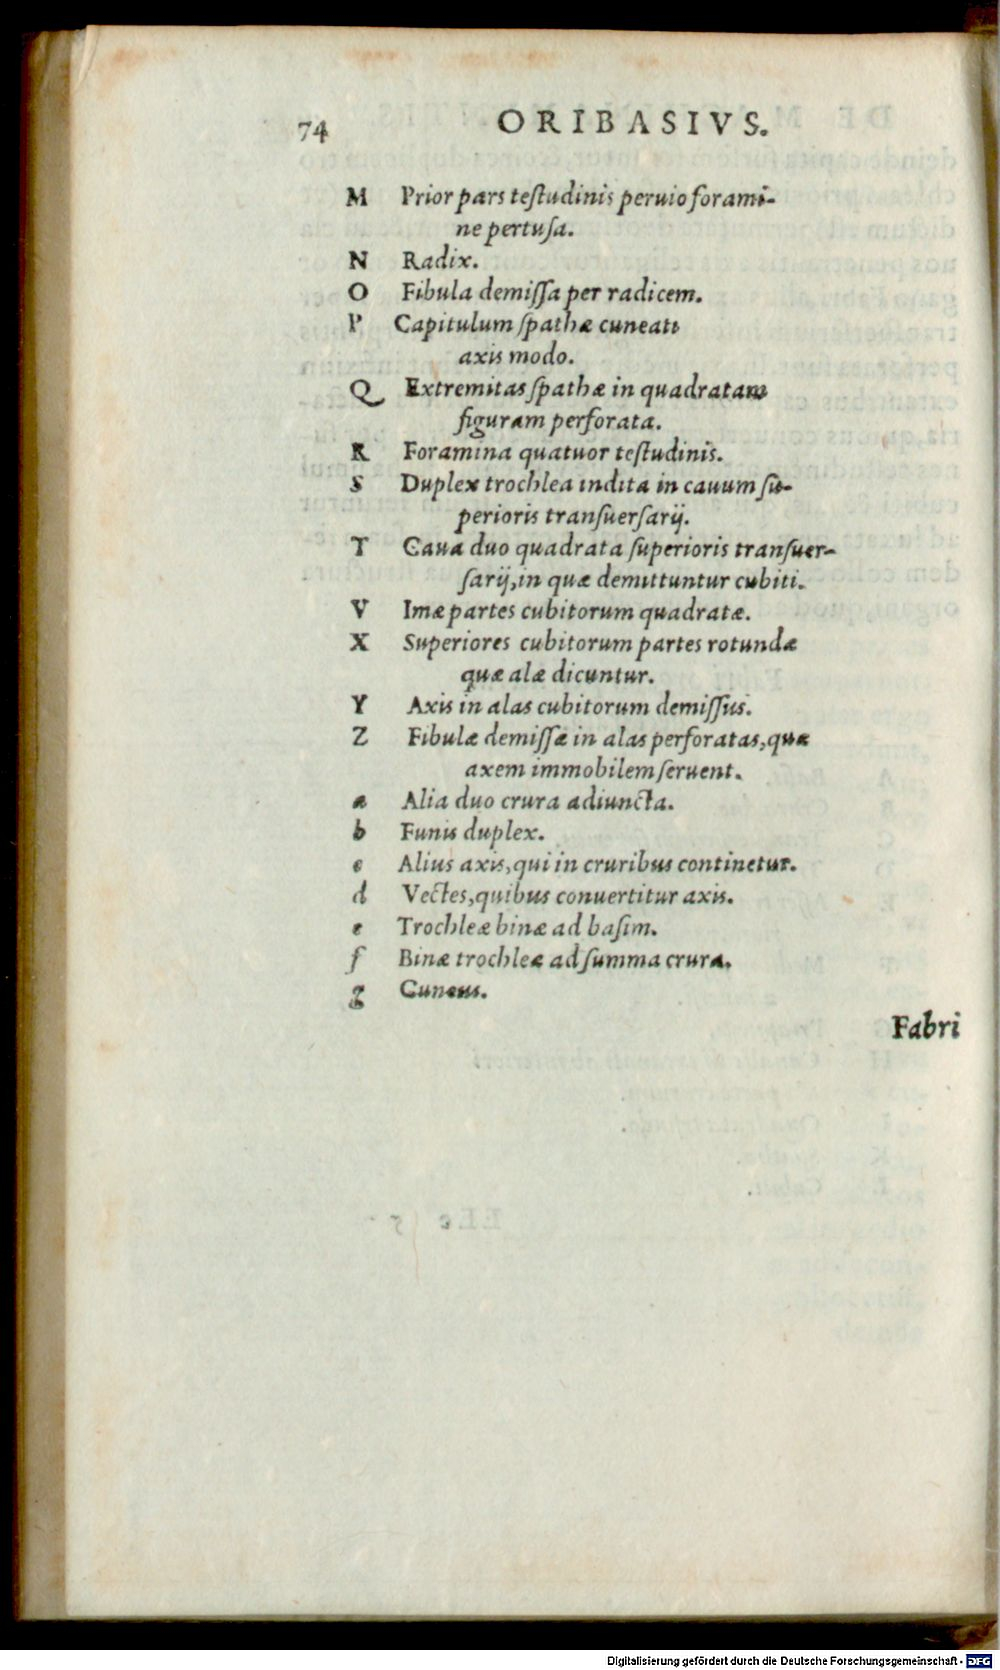 74 ORIBASIVS.
M Prior pars teſtudinis peruio forami-
ne pertuſa.
N Radix.
O Fibula demiſſa per radicem.
P Capitulum ſpathæ cuneati
axis modo.
Q Extremitas ſpathæ in quadratam
figuram perforata.
R Foramina quatuor teſtudinis.
S Duplex trochlea indita in cauum ſu-
perioris tranſuerſarij.
T Caua duo quadrata ſuperioris tranſuer-
ſarij,in quæ demittuntur cubiti.
V Imæ partes cubitorum quadratæ.
X Superiores cubitorum partes rotundæ
quæ alæ dicuntur.
Y Axis in alas cubitorum demiſſus.
Z Fibulæ demiſſæ in alas perforatas,quæ
axem immobilem ſeruent.
a Alia duo crura adiuncta.
b Funis duplex.
c Alius axis,qui in cruribus continetur.
d Vectes,quibus conuertitur axis.
e Trochleæ binæ ad baſim.
f Binæ trochleæ ad ſumma crura.
g Cuneus.
Fabri
Digitalisierung gefördert durch die Deutsche Forschungsgemeinschaft - DFG